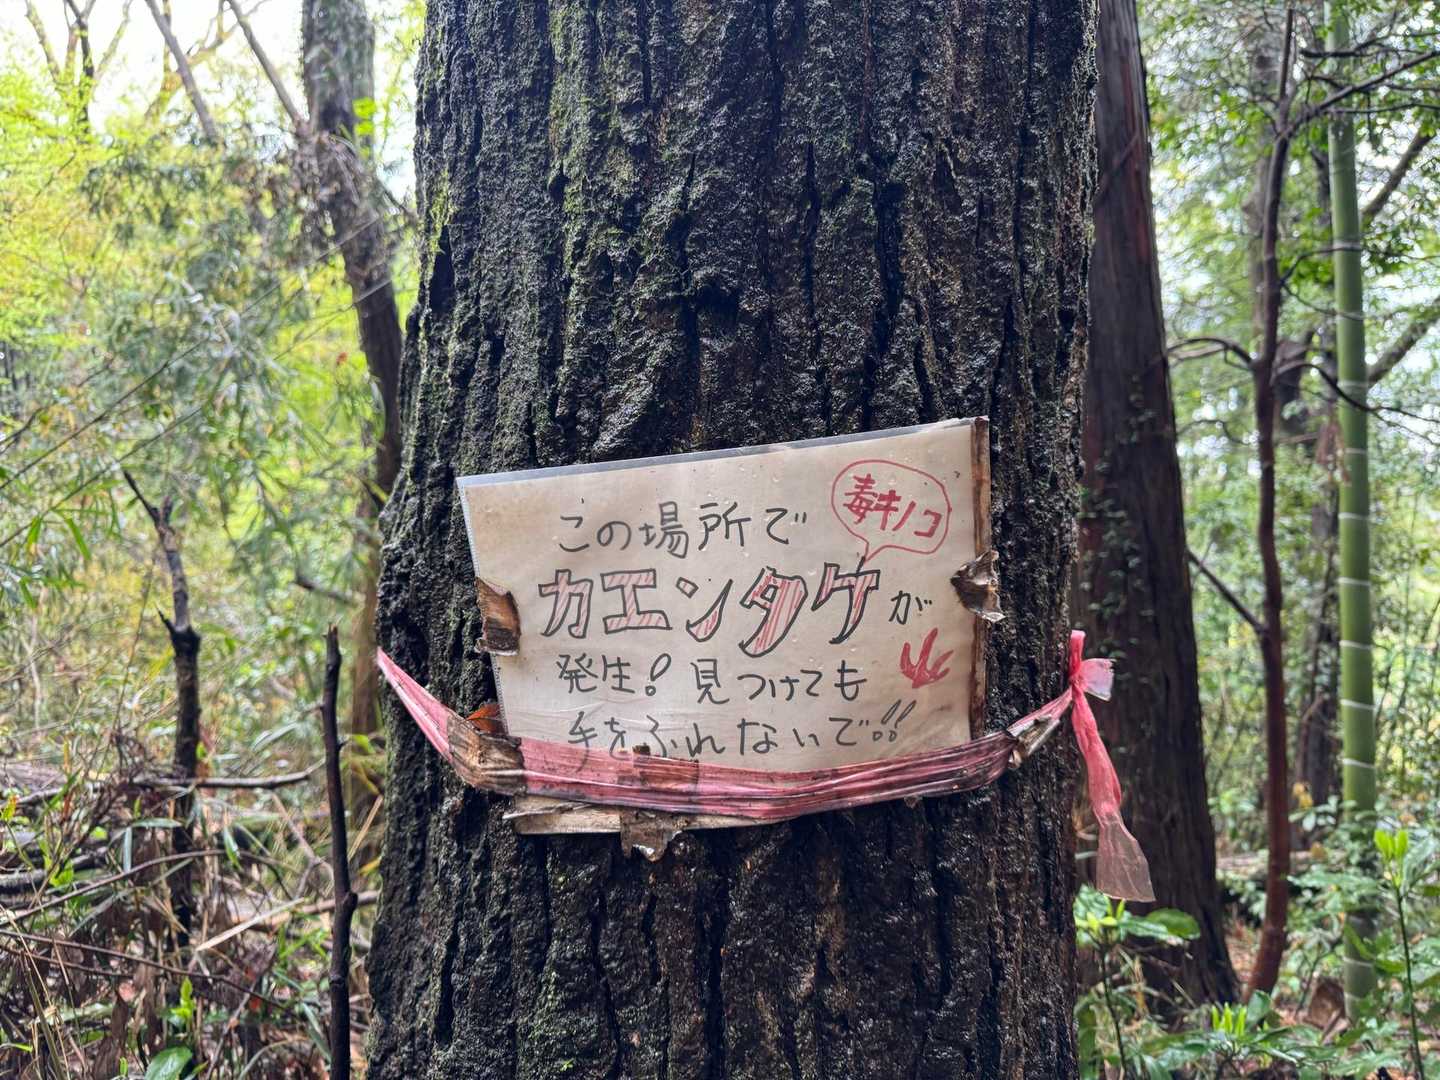 この場所で
毒キノコ
カエンタケが
発生!見つけても
手をふれないで!!